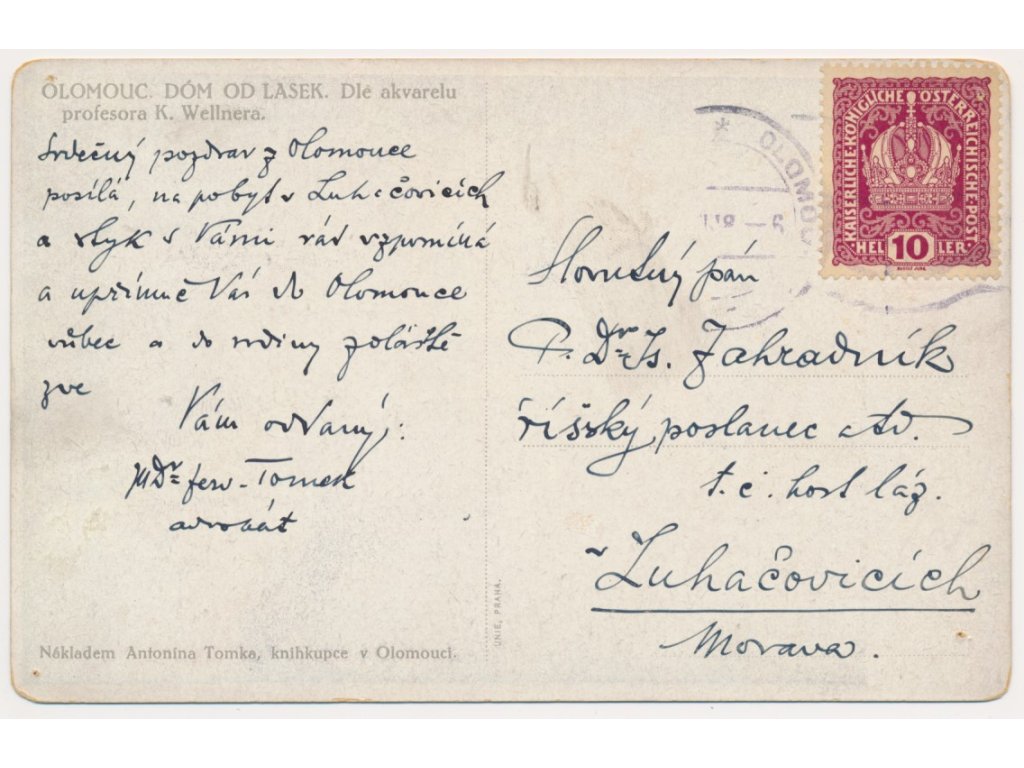 OLOMOUC. DÓM OD LASEK. Dle akvarelu
profesora K. Wellnera.
Srdečný pozdrav z Olomouce
posílá, na pobyt v Luhačovicích
a styk s Vámi rád vzpomíná
a upřímně Vás do Olomouce
vůbec a do rodiny zvláště
zve
Vám oddaný:
Tomek
advokát
Nákladem Antonína Tomka, knihkupce v Olomouci.
UNIE, PRAHA.
* OLOMOUC
KAISERLICHE KÖNIGLICHE ÖSTERREICHISCHE POST
HEL 10 LER
Slovutný pán
P. Dr. Is. Zahradník
říšský poslanec atd.
t. č. host láz.
v Luhačovicích
Morava.